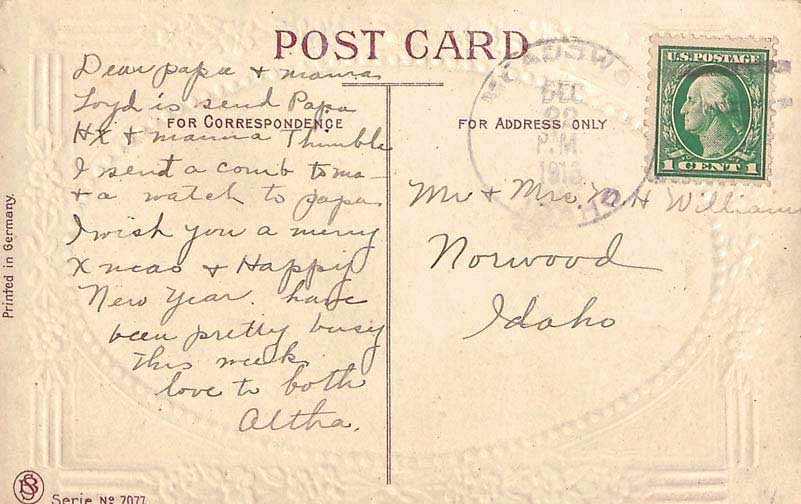 POST CARD
FOR CORRESPONDENCE
FOR ADDRESS ONLY
Dear papa & mama
Loyd is send Papa
& mama Thimble
I send a comb to ma
& a watch to papa
I wish you a merry
Xmas & Happy
New Year. have
been pretty busy
this week
love to both
Altha.
Mr & Mrs. H Williams
Norwood
Idaho
U.S. POSTAGE
1 CENT 1
MEADOW
DEC
22
P.M.
Printed in Germany.
Serie No 7077